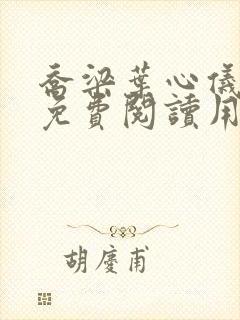 喬梁葉心儀
免費閱讀用
胡慶甫